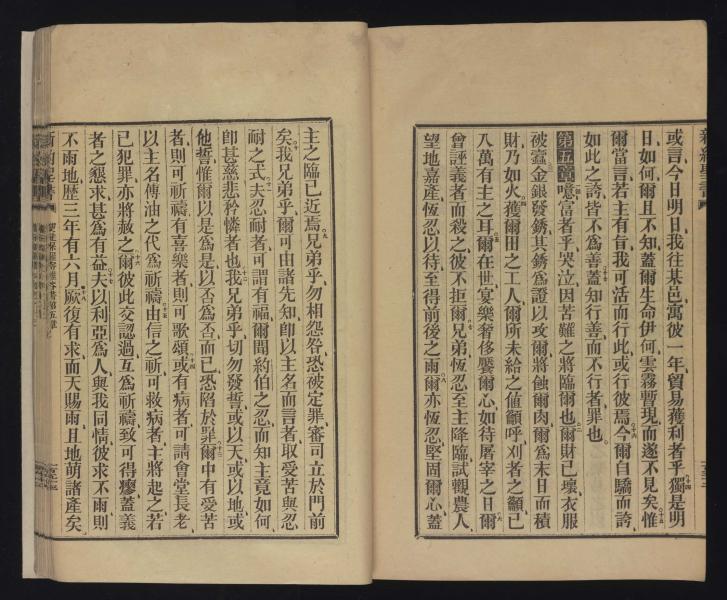 新約聖書
或言今日明日我往某邑寓彼一年貿易獲利者乎獨是明
日如何爾且不知蓋爾生命伊何雲霧暫現而遂不見矣惟
爾當言若主有旨我可活而行此或行彼焉今爾自驕而誇
如此之誇皆不爲善蓋知行善而不行者罪也
第五章噫富者乎哭泣因苦難之將臨爾也爾財已壞衣服
被蠹金銀發銹其銹爲證以攻爾將蝕爾肉爾爲末日而積
財乃如火獲爾田之工人爾所未給之値籲呼刈者之籲已
八萬有主之耳爾在世宴樂奢侈饜爾心如待屠宰之日爾
曾誣義者而殺之彼不拒爾兄弟恆忍至主降臨試觀農人
望地嘉產恆忍以待至得前後之雨爾亦恆忍堅固爾心蓋
主之臨已近焉兄弟乎勿相怨咎恐被定罪審司立於門前
矣我兄弟乎爾可由諸先知卽以主名而言者取受苦與忍
耐之式夫忍耐者可謂有福爾聞約伯之忍而知主竟如何
卽甚慈悲矜憐者也我兄弟乎切勿發誓或以天或以地或
他誓惟爾以是爲是以否爲否而已恐陷於罪爾中有受苦
者則可祈禱有喜樂者則可歌頌或有病者可請會堂長老
以主名傅油之代爲祈禱由信之祈可救病者主將起之若
已犯罪亦將赦之爾彼此交認過互爲祈禱致可得瘳蓋義
者之懇求甚爲有益夫以利亞爲人與我同情彼求不雨則
不雨地歷三年有六月厥復有求而天賜雨且地萌諸產矣
新約聖書